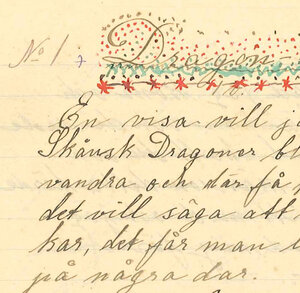 No 1. Dragon
En visa vill
Skånsk Dragoner
vandra och där få
det vill säga att
kar, det får man
på några dar.